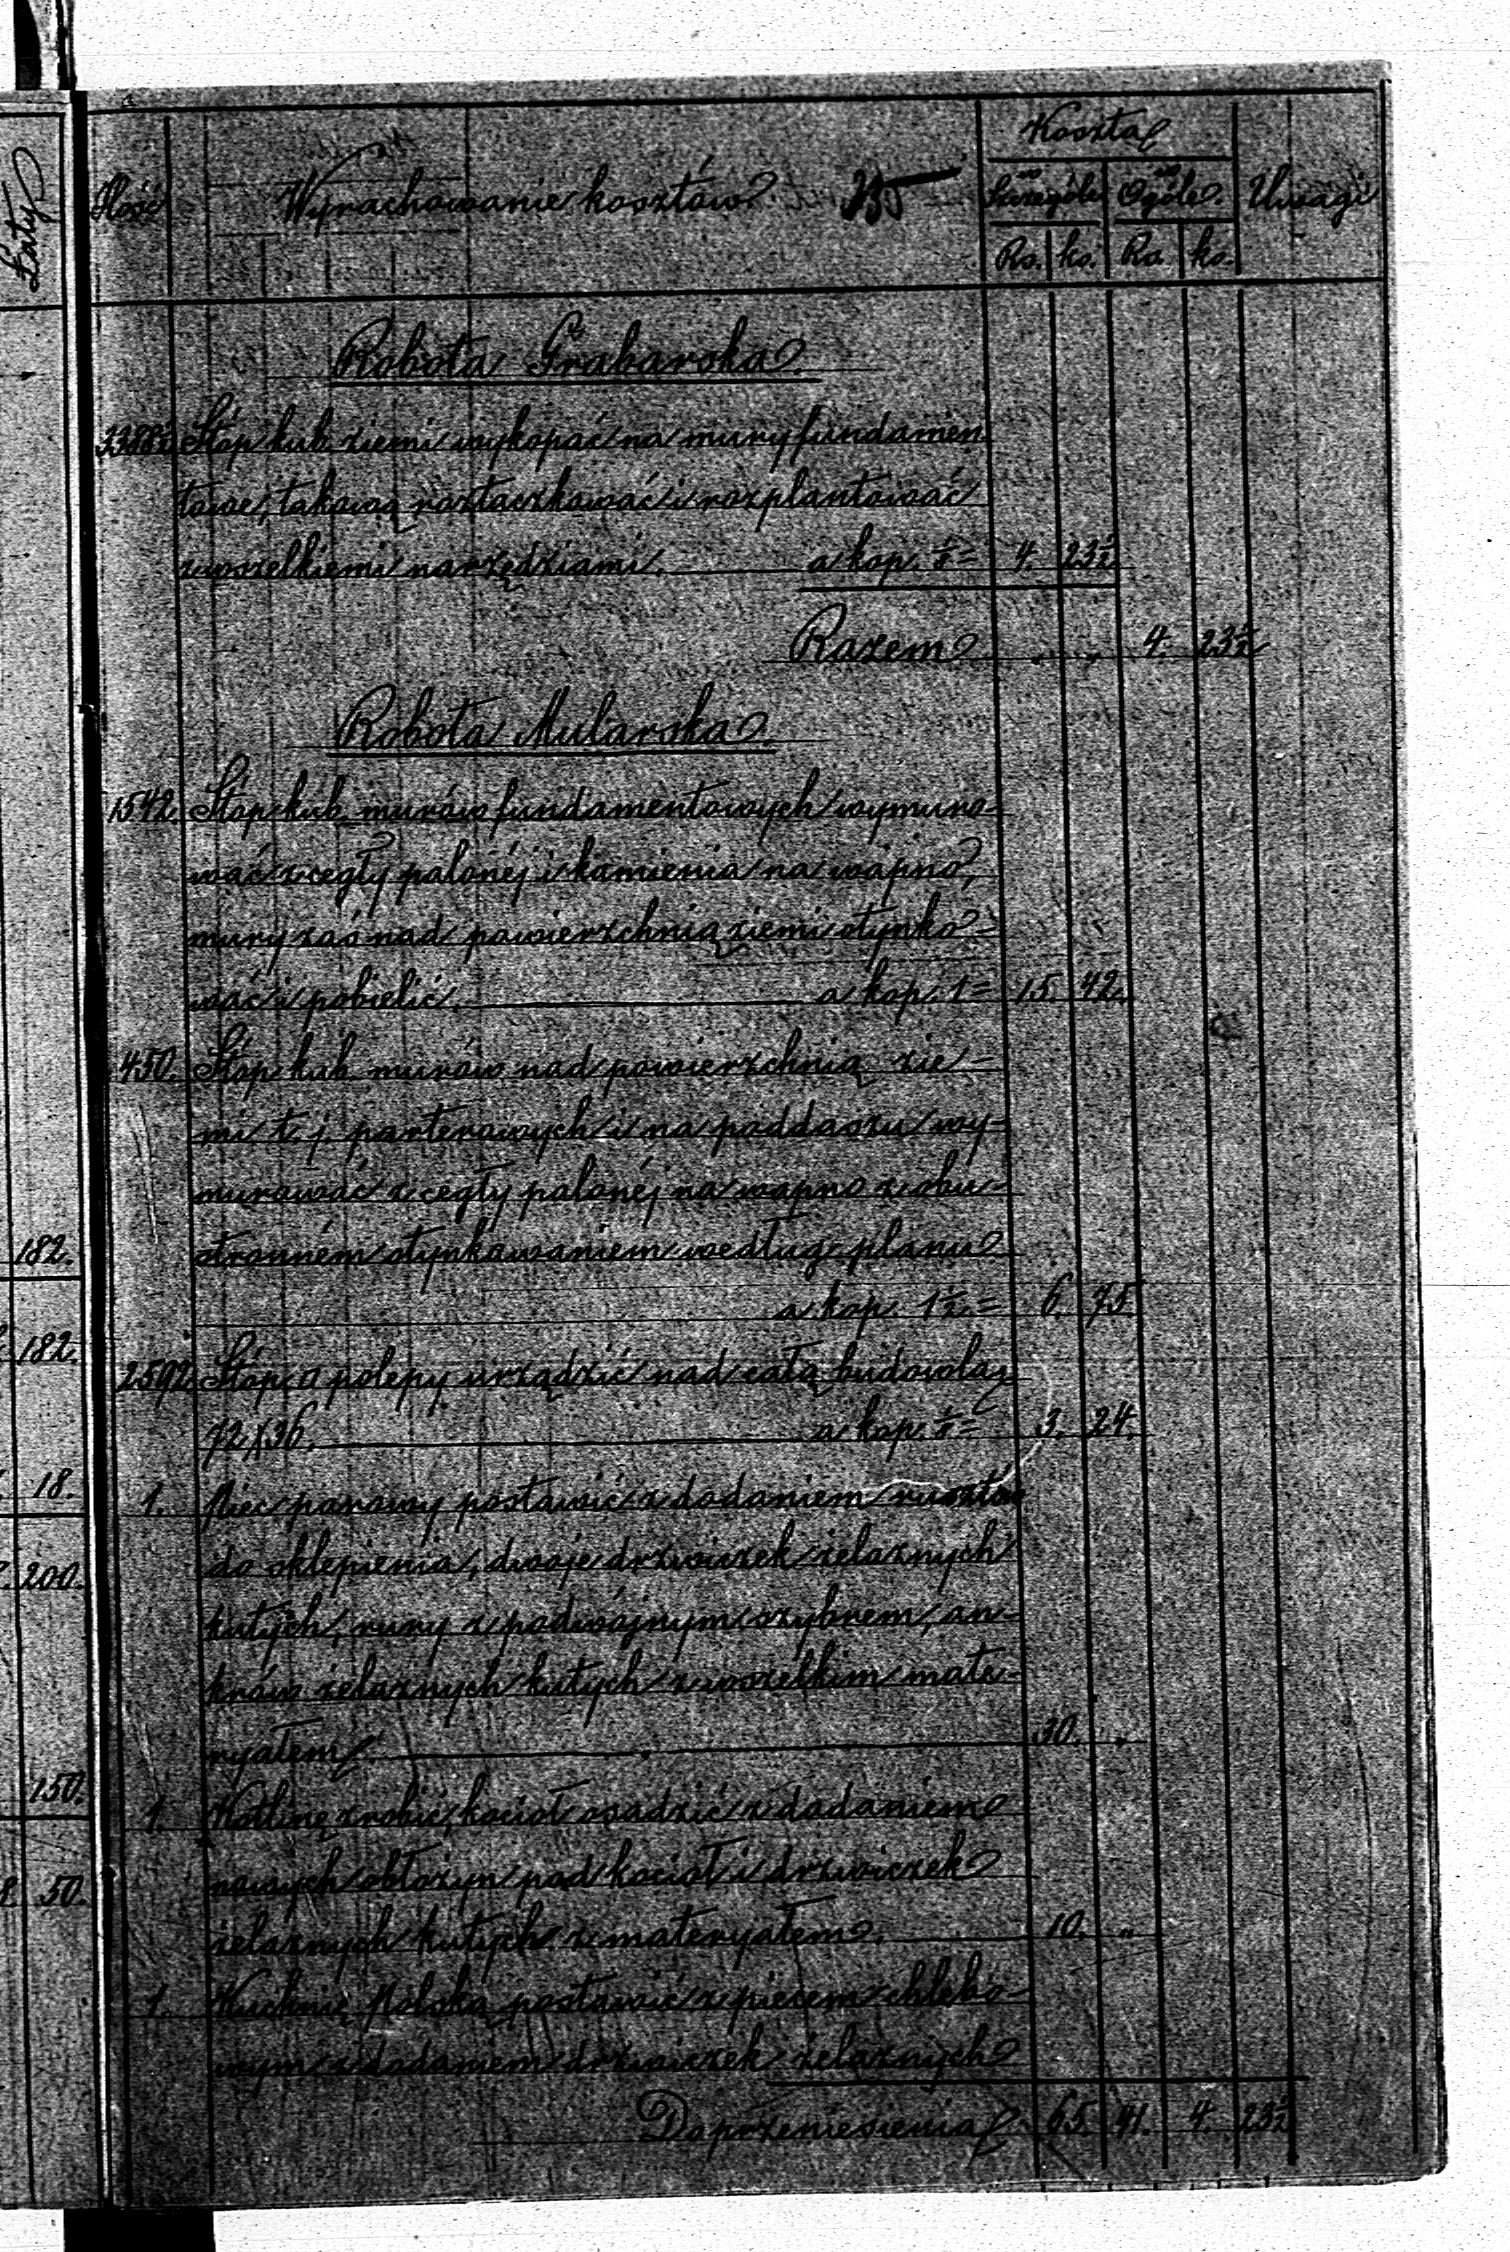 Łaty
182.
182.
18.
200.
150.
50.
Ilość
Wyrachowanie kosztów
235
Koszta
w Szczególe
w Ogóle.
Uwagi
Rs. ko. Rs. ko.
Robota Grabarska.
3388½ Stóp kub. ziemi wykopać na mury fundamen
towe, takową roztaczkować i rozplantować
z wszelkiemi narzędziami. a kop. ⅛ = 4. 23½
Razem „ „ 4. 23½
Robota Mularska.
1542 Stóp kub. murów fundamentowych wymuro-
wać z cegły palonéj i kamienia na wapno,
mury zaś nad powierzchnią ziemi otynko-
wać i pobielić. a kop. 1 = 15. 42.
450. Stóp kub. murów nad powierzchnią zie-
mi t. j. parterowych i na poddaszu wy-
murować z cegły palonéj na wapno z obu-
stronném otynkowaniem według planu
a kop. 1½ = 6. 75
2592 Stóp □ polepy urządzić nad całą budowlą
72 × 36. a kop. ⅛ = 3. 24.
1. Piec parowy postawić z dodaniem rusztów
do sklepienia, dwoje drzwiczek żelaznych
kutych, rury z podwójnym szybrem, an-
krów żelaznych kutych z wszelkim mate-
ryałem 30. „
1. Kotlinę zrobić, kocioł osadzić z dodaniem
nowych obłożyn pod kocioł i drzwiczek
żelaznych kutych z materyałem. 10. „
1. Kuchnię Polską postawić z piecem chlebo-
wym z dodaniem drzwiczek żelaznych
Do przeniesienia 65. 41. 4. 23½